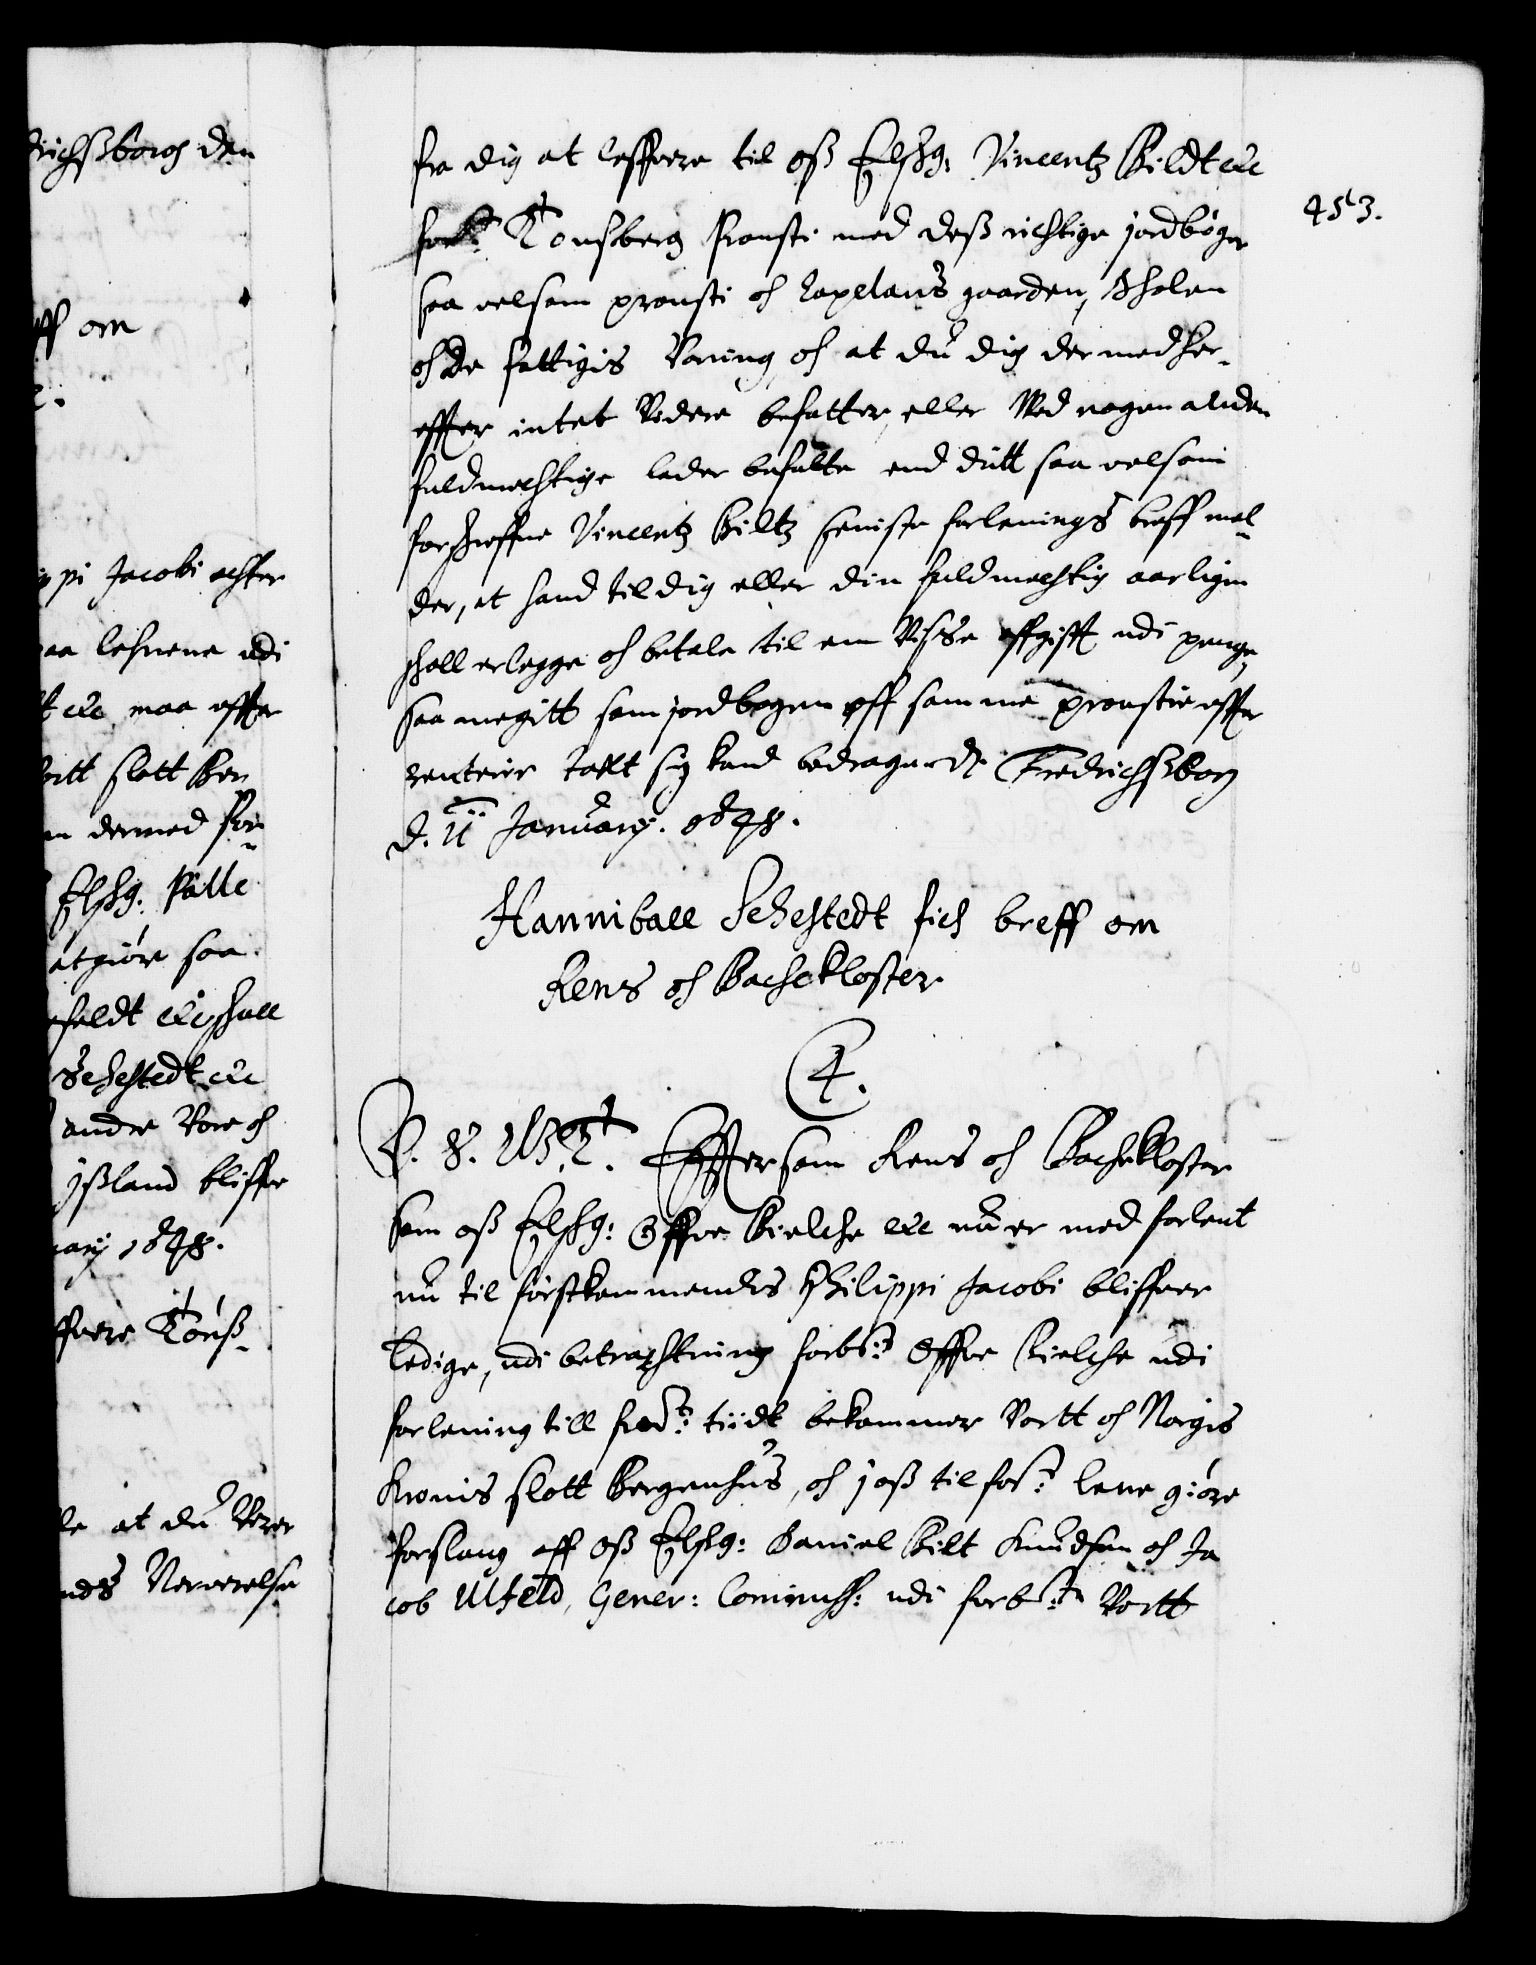 richsborg den
ff om
ippi Jacobi achter
aa lehnene udi
t etc maa effter
ortt slott Ber
n dermed for-
Elskg: Palle
at giøre saa.
feldt etc skall
Sehestedt etc
andre Vore och
Jsland bliffve
uarij 1648.
ffvere Tonsz-
le at du Verer
nds Nerverelse
fra dig at leffvere til osz Elskg: Vincentz Bildt etc
forbt: Tonsberg Prousti med desz richtige jordbøger
saa velsom prousti och Capelans gaarden, Skolen
och De fattigis Boning, och at du dig dermed her-
effter intet Videre befatter, eller Ved nogen anden
fuldmechtige lader befatte end ditt saa velsom
forskreffne Vincentz Biltz seniste forlenings breff mel-
der, at hand til dig eller din fuldmechtig aarligen
skall erlegge och betale til en Visse affgifft udi penge,
saa megitt som jordbogen aff samme prousti effter
renteriee Taxt sig kand bedrage. Dt. Fredrichsborg
d. 11 Januarij. 1648.
453.
Hanniball Sehestedt fich breff om
Rens och Bachekloster
C4.
V. S. G. T. Efftersom Rens och Bachekloster
som osz Elskg: Offve Bielche etc nu er med forlent
nu til førstkommendes Philippi Jacobi bliffver
ledige, udi betrachtning forbt: Offve Bielche udi
forlening till freds: tiidt bekommer Vortt och Norgis
Kronis slott Bergenhus, och j osz til forst: lene giøre
forslaug aff osz Elskg: Daniel Bilt Knudsen och Ja
cob Ulfeld, Gener: Commiss: udi forbt: Vortt